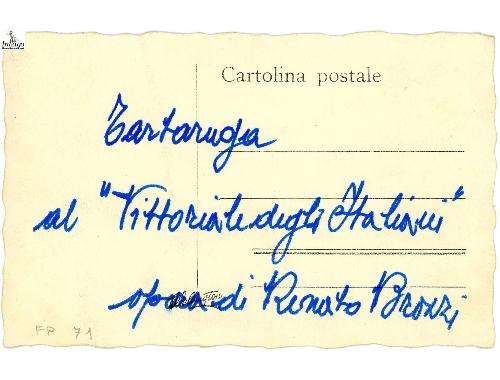 Cartolina postale
Tartaruga
al "Vittoriale degli Italiani"
opera di Renato Brozzi
FP 71